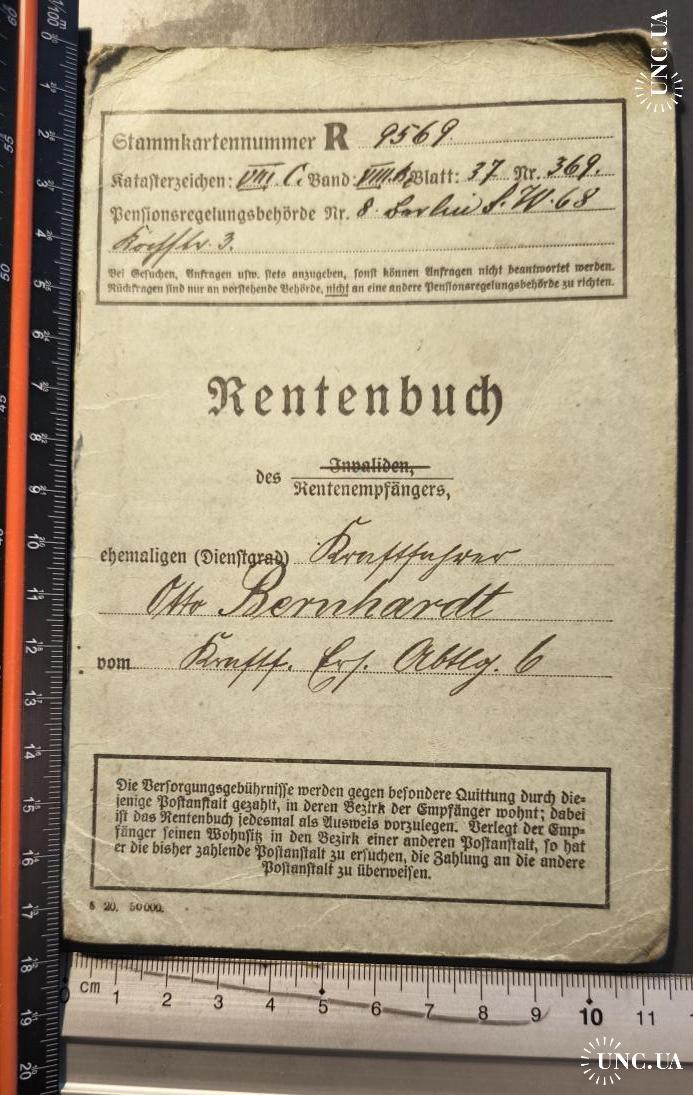 Stammkartennummer R 9569.
Katasterzeichen: VIII. C. Band: VIII.b. Blatt: 37 Nr. 369.
Pensionsregelungsbehörde Nr. 8 Berlin S.W. 68
Kochstr. 3.
Bei Gesuchen, Anfragen usw. stets anzugeben, sonst können Anfragen nicht beantwortet werden.
Rückfragen sind nur an vorstehende Behörde, nicht an eine andere Pensionsregelungsbehörde zu richten.
Rentenbuch
des Invaliden,
Rentenempfängers,
ehemaligen (Dienstgrad) Kraftfahrer
Otto Bernhardt
vom Kraftf. Ers. Abtlg. 6
Die Versorgungsgebührnisse werden gegen besondere Quittung durch die-
jenige Postanstalt gezahlt, in deren Bezirk der Empfänger wohnt; dabei
ist das Rentenbuch jedesmal als Ausweis vorzulegen. Verlegt der Emp-
fänger seinen Wohnsitz in den Bezirk einer anderen Postanstalt, so hat
er die bisher zahlende Postanstalt zu ersuchen, die Zahlung an die andere
Postanstalt zu überweisen.
8 20. 50000.
0 cm 1 2 3 4 5 6 7 8 9 10 11
0 1 2 3 4 5 6 7 8 9 10 11 12 13 14 15 16 17 18 19 20
UNC.UA
UNC.UA